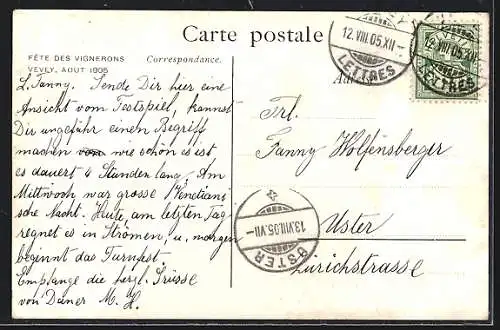 Carte postale
FÊTE DES VIGNERONS
VEVEY, AOUT 1905
Correspondance.
L. Fanny. Sende Dir hier eine
Ansicht vom Festspiel, kannst
Dir ungefähr einen Begriff
machen wie schön es ist
es dauert 4 Stunden lang. Am
Mittwoch war grosse Venetiani
sche Nacht. Heute, am letzten Tag
regnet es in Strömen, u, morgen
beginnt das Turnfest.
Empfange die herzl. Grüsse
von Deiner M. H.
12.VIII.05.XII
LETTRES
12.VIII.05.XII
LETTRES
Frl.
Fanny Wolfensberger
Uster
Zürichstrasse
13.VIII.05.VII
USTER